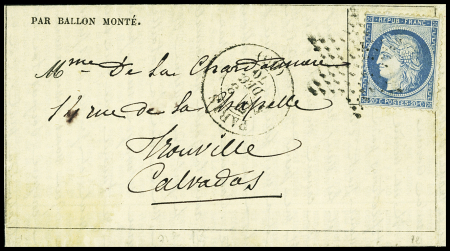 PAR BALLON MONTÉ.
REPUB. FRANC.
Mme De La Chardonnière
14 rue de la Chapelle
PARIS
DEC.
Trouville
Calvados
20c POSTES 20c